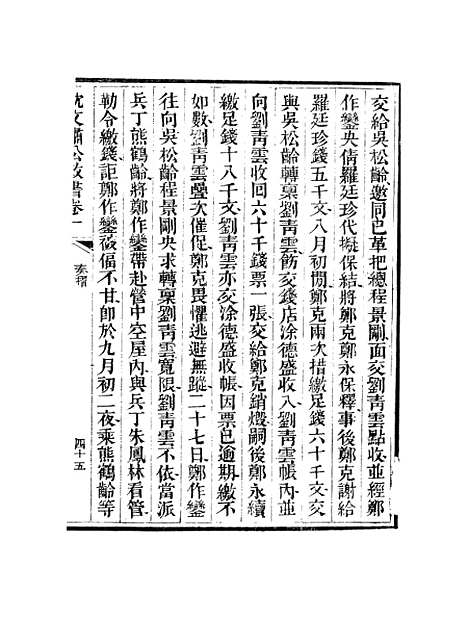 交給吳松齡邀同已革把總程景剛面交劉靑雲點收並經鄭
作鑾央倩羅廷珍代擬保結將鄭克鄭永保釋事後鄭克謝給
羅廷珍錢五千文八月初間鄭克兩次措繳足錢六十千文交
與吳松齡轉稟劉靑雲飭交錢店涂德盛收入劉靑雲帳內並
向劉靑雲收回六十千錢票一張交給鄭克銷燬嗣後鄭永續
繳足錢十八千文劉靑雲亦交涂德盛收帳因票已逾期繳不
如數劉靑雲疊次催促鄭克畏懼逃避無蹤二十七日鄭作鑾
往向吳松齡程景剛央求轉稟劉靑雲寬限劉靑雲不依當派
兵丁熊鶴齡將鄭作鑾帶赴營中空屋內與兵丁朱鳳林看管
勒令繳錢詎鄭作鑾被偪不甘卽於九月初二夜乘熊鶴齡等
沈文肅公政書卷一
奏摺
四十五